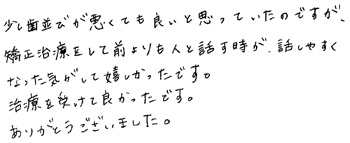 少し歯並びが悪くても良いと思っていたのですが、
矯正治療をして前よりも人と話す時が、話しやすく
なった気がして嬉しかったです。
治療を受けて良かったです。
ありがとうございました。